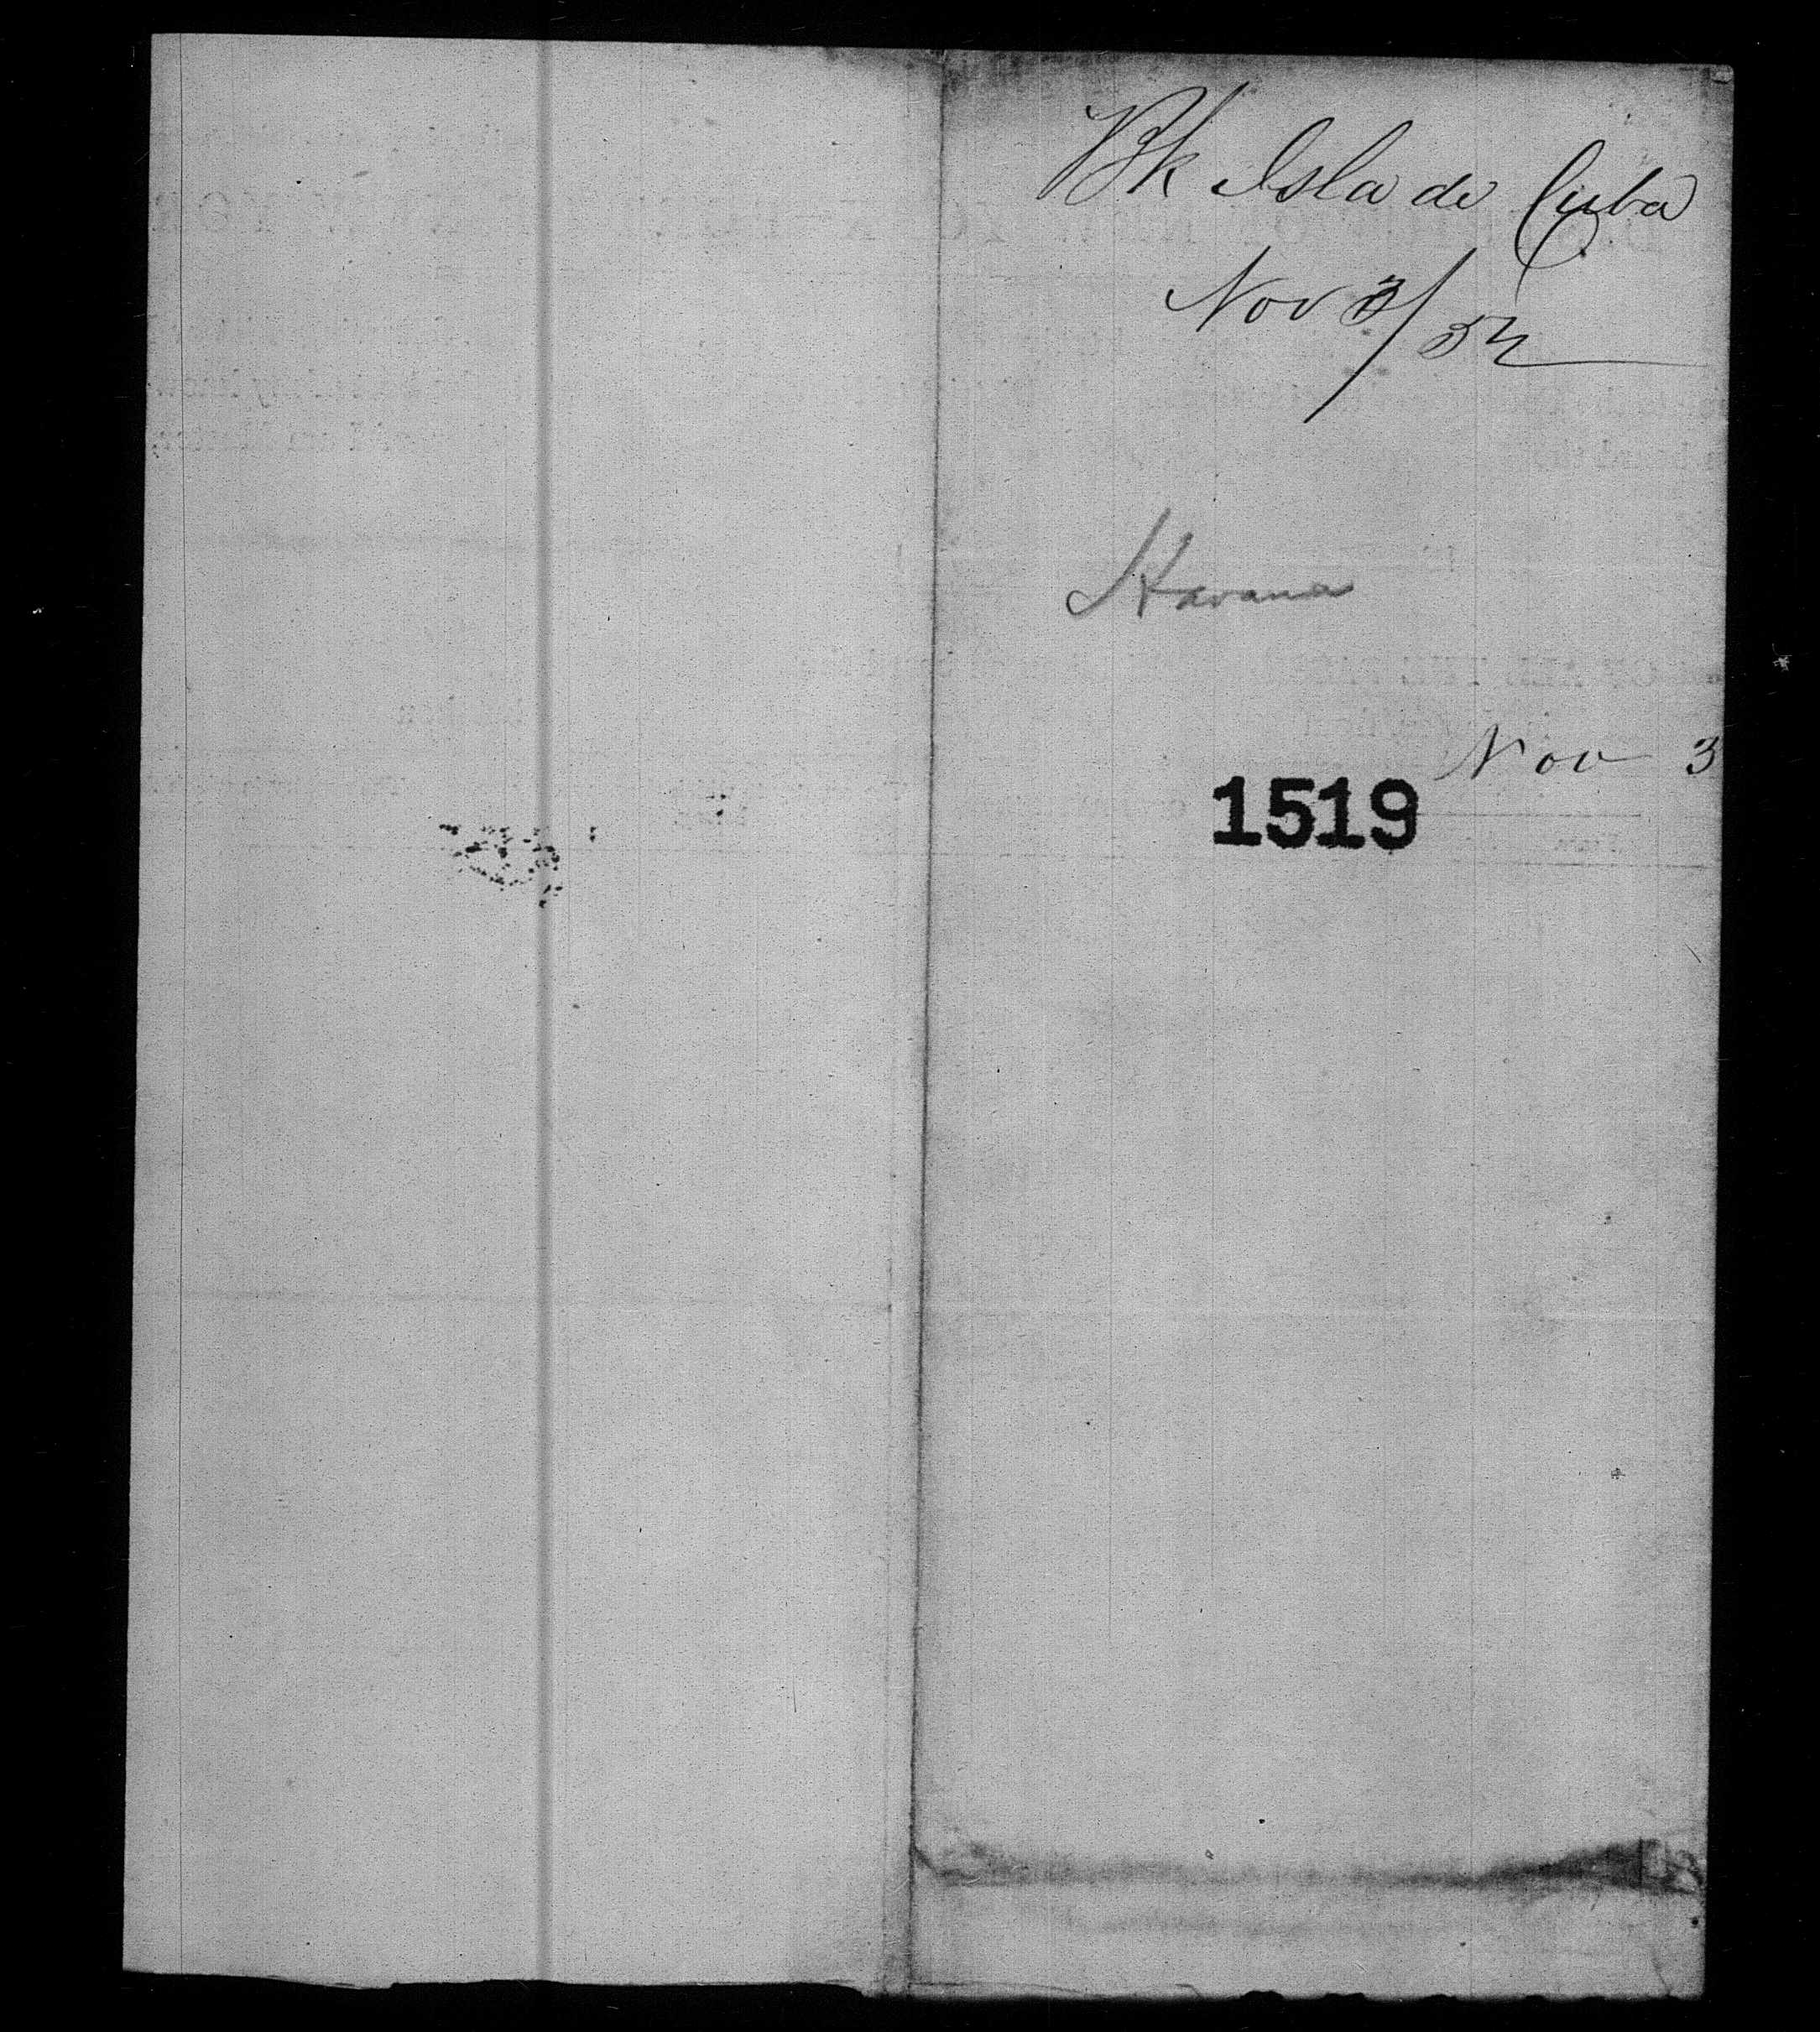 Bk Isla de Cuba
Nov 3/52
Havana
Nov 3
1519